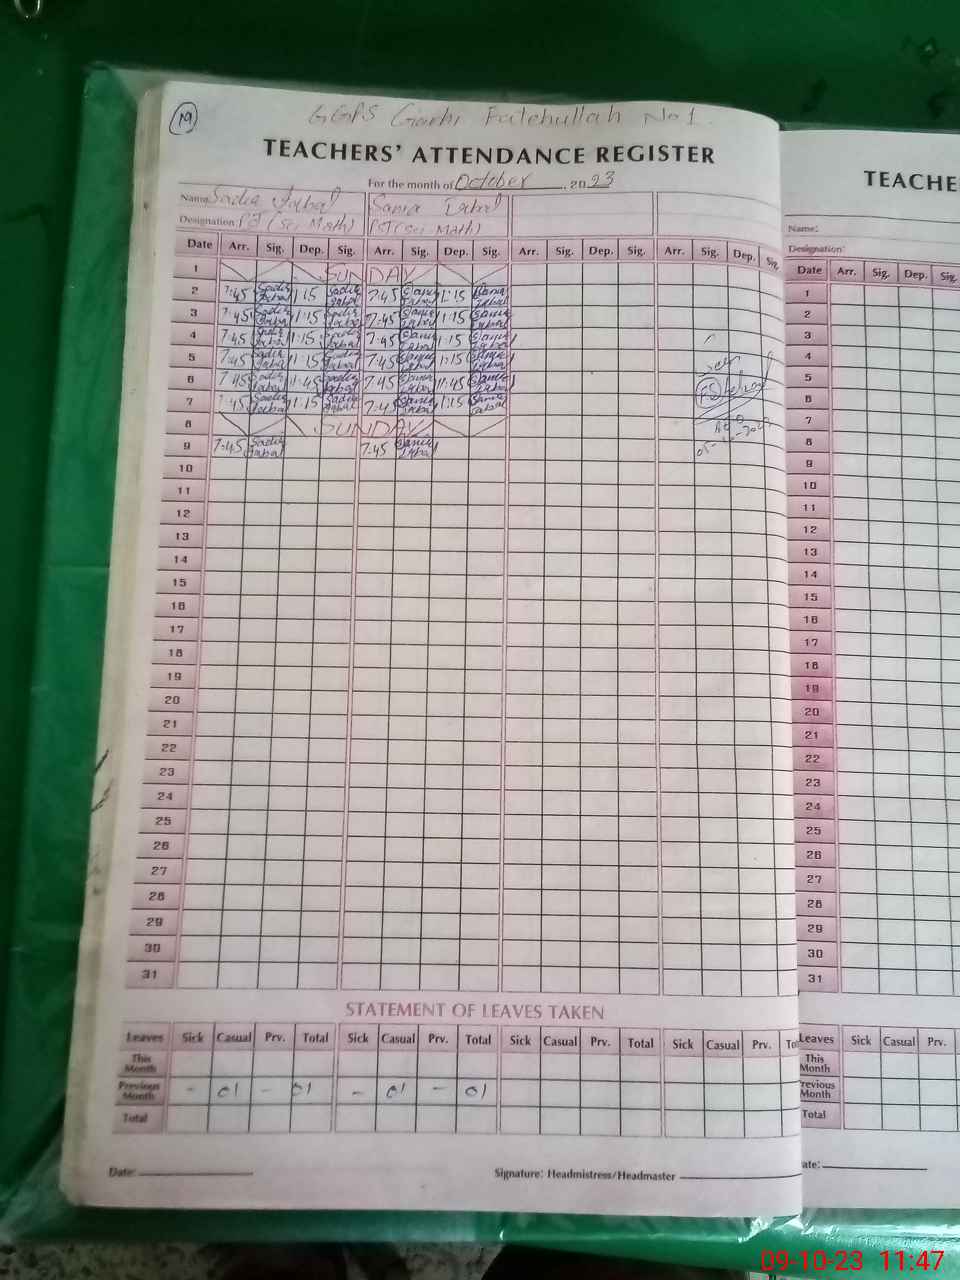 19
GGPS Garhi Fatehullah No 1.
TEACHERS' ATTENDANCE REGISTER
For the month of October, 2023
Name: Sadia Iqbal Sania Iqbal
Designation: PST (Sci Math) PST (Sci Math)
Date Arr. Sig. Dep. Sig. Arr. Sig. Dep. Sig. Arr. Sig. Dep. Sig. Arr. Sig. Dep. Sig.
1 SUNDAY
2 7:45 Sadia Iqbal 1:15 Sadia Iqbal 7:45 Sania Iqbal 1:15 Sania Iqbal
3 7:45 Sadia Iqbal 1:15 Sadia Iqbal 7:45 Sania Iqbal 1:15 Sania Iqbal
4 7:45 Sadia Iqbal 1:15 Sadia Iqbal 7:45 Sania Iqbal 1:15 Sania Iqbal
5 7:45 Sadia Iqbal 1:15 Sadia Iqbal 7:45 Sania Iqbal 1:15 Sania Iqbal
6 7:45 Sadia Iqbal 11:45 Sadia Iqbal 7:45 Sania Iqbal 11:45 Sania Iqbal
7 7:45 Sadia Iqbal 1:15 Sadia Iqbal 7:45 Sania Iqbal 1:15 Sania Iqbal
8 SUNDAY
9 7:45 Sadia Iqbal 7:45 Sania Iqbal
10
11
12
13
14
15
16
17
18
19
20
21
22
23
24
25
26
27
28
29
30
31
STATEMENT OF LEAVES TAKEN
Leaves Sick Casual Prv. Total Sick Casual Prv. Total Sick Casual Prv. Total Sick Casual Prv. Tot
This Month
Previous Month - 01 - 01 - 01 - 01
Total
Date: Signature: Headmistress/Headmaster
TEACHE
Name:
Designation:
Date Arr. Sig. Dep. Sig.
1
2
3
4
5
6
7
8
9
10
11
12
13
14
15
16
17
18
19
20
21
22
23
24
25
26
27
28
29
30
31
Leaves Sick Casual Prv.
This Month
Previous Month
Total
ate:
09-10-23 11:47